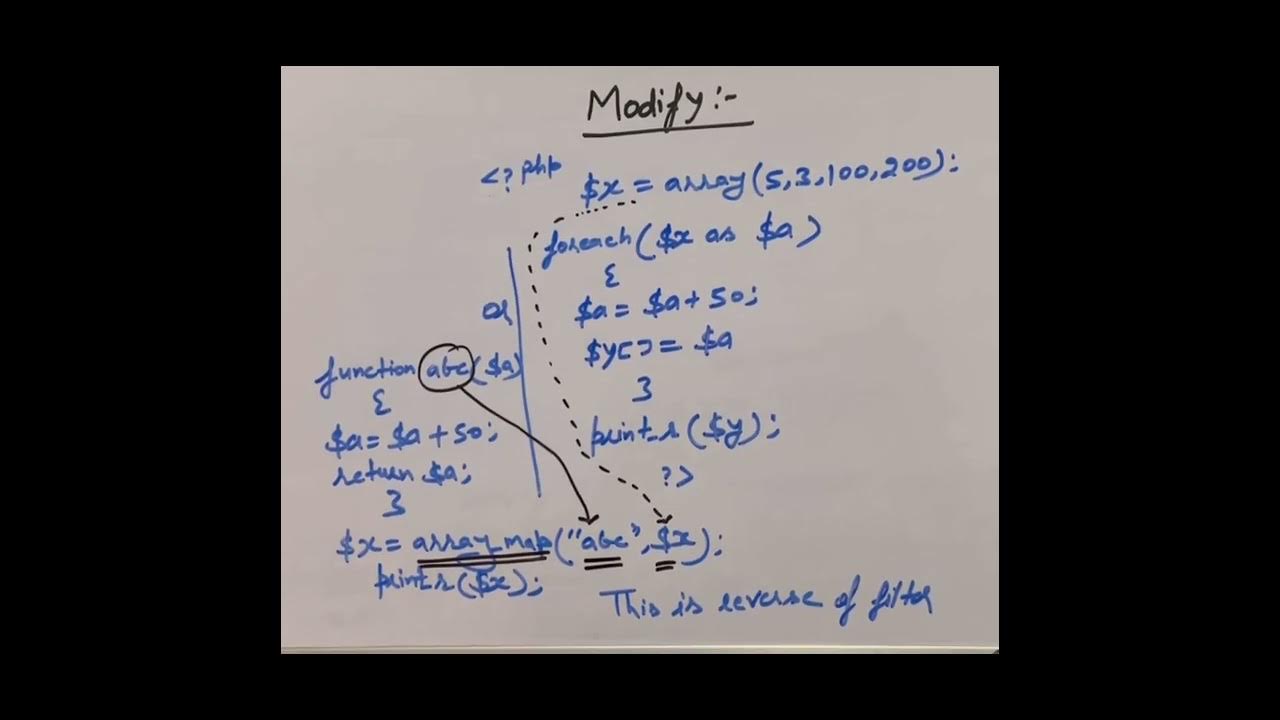 Modify :-
<? php
$x = array(5,3,100,200);
foreach ($x as $a)
{
$a = $a + 50;
$y[] = $a
}
print_r ($y);
?>
or
function abc ($a)
{
$a = $a + 50;
return $a;
}
$x = array_map("abc", $x);
print_r($x);
This is reverse of filter